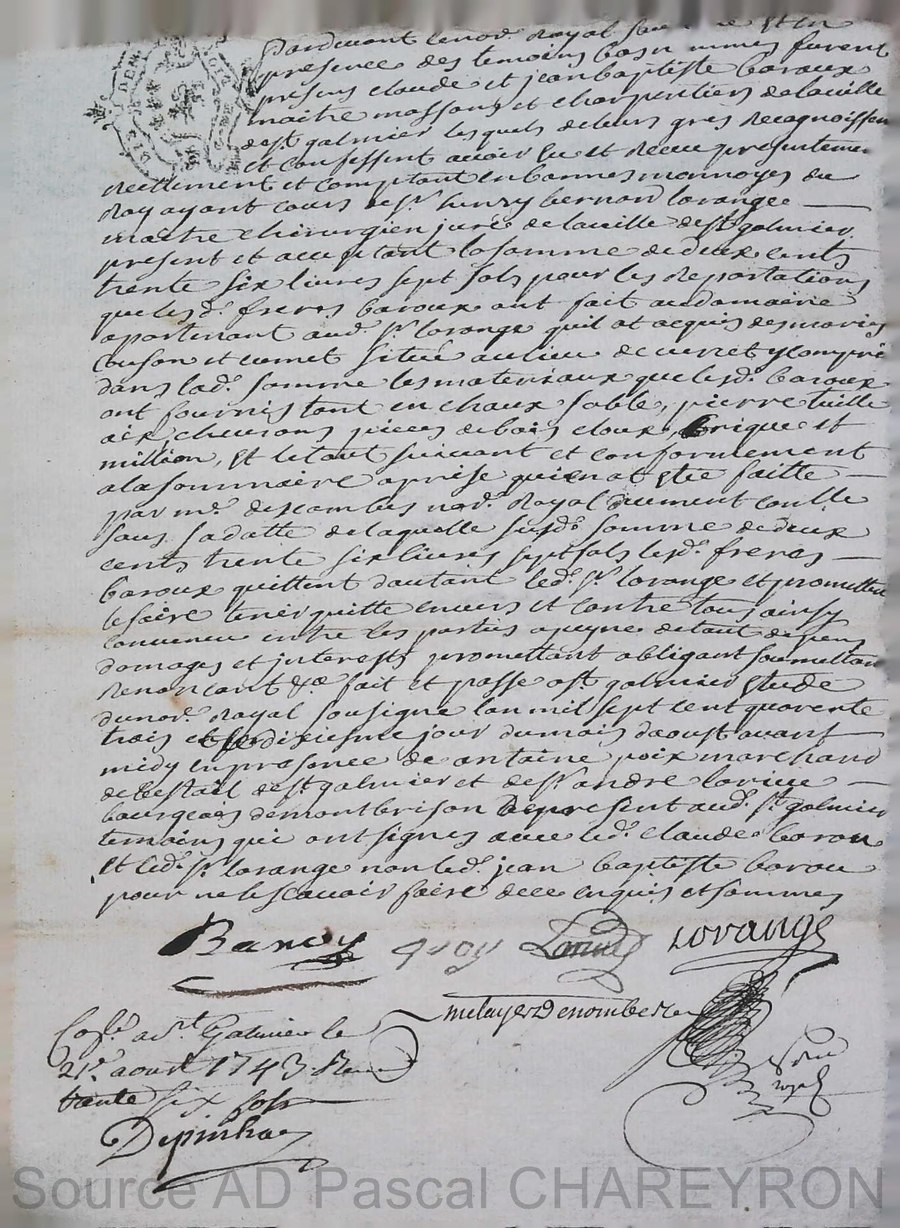 Pardevant le no.re Royal sou et en
presence des temoins bas nommes furent
presens claude et jean baptiste baroux
maitre massons et charpentiers de la ville
de st galmier lesquels de leurs grés Recognoissen
et confessent avoir eu et Receu presentemen
reellement et comptant en bonnes monnoyes du
Roy ayant cours de sr. henry bernard lorange
maitre chirurgien juré de la ville de st galmier
present et acceptant la somme de deux cents
trente six livres sept sols pour les Repartations
que lesd. freres baroux ont fait au domaine
apartenant aud. sr. lorange quil at acquis des mariés
couson et cumet situé au lieu de cuvret y compris
dans lad. somme les materiaux que lesd. baroux
ont fournis tant en chaux sable, pierre taille
aix, chevrons pieces de bois cloux, brique et
million, et le tout suivant et conformement
a la sommaire aprise qui en at etée faitte
par me. descombes no.re Royal duement conllé
sous sa datte de laquelle susd. somme de deux
cents trente six livres sept sols lesd. freres
baroux quittent d'autant led. sr. lorange et promettent
le faire tenir quitte envers et contre tous ainsy
convenu entre les parties a peyne de tout depens
domages et interests promettant obligant soumettan
Renonçant &a fait et passé a st. galmier etude
du no.re Royal sousigné lan mil sept cent quarente
trois et le dixiesme jour du mois daoust avant
midy en presence de antoine poix marchand
de st. galmier et de sr. andré
bourgeois de montbrison de present aud. st galmier
temoins qui ont signes avec led. claude barou
et led. sr. lorange non led. jean baptiste barou
pour ne le scavoir faire de ce enquis et sommes
Barou lorange
Coñlé a St Galmier le
21e. aoust 1743 R
trante six sols
Depinhac
Source AD Pascal CHAREYRON